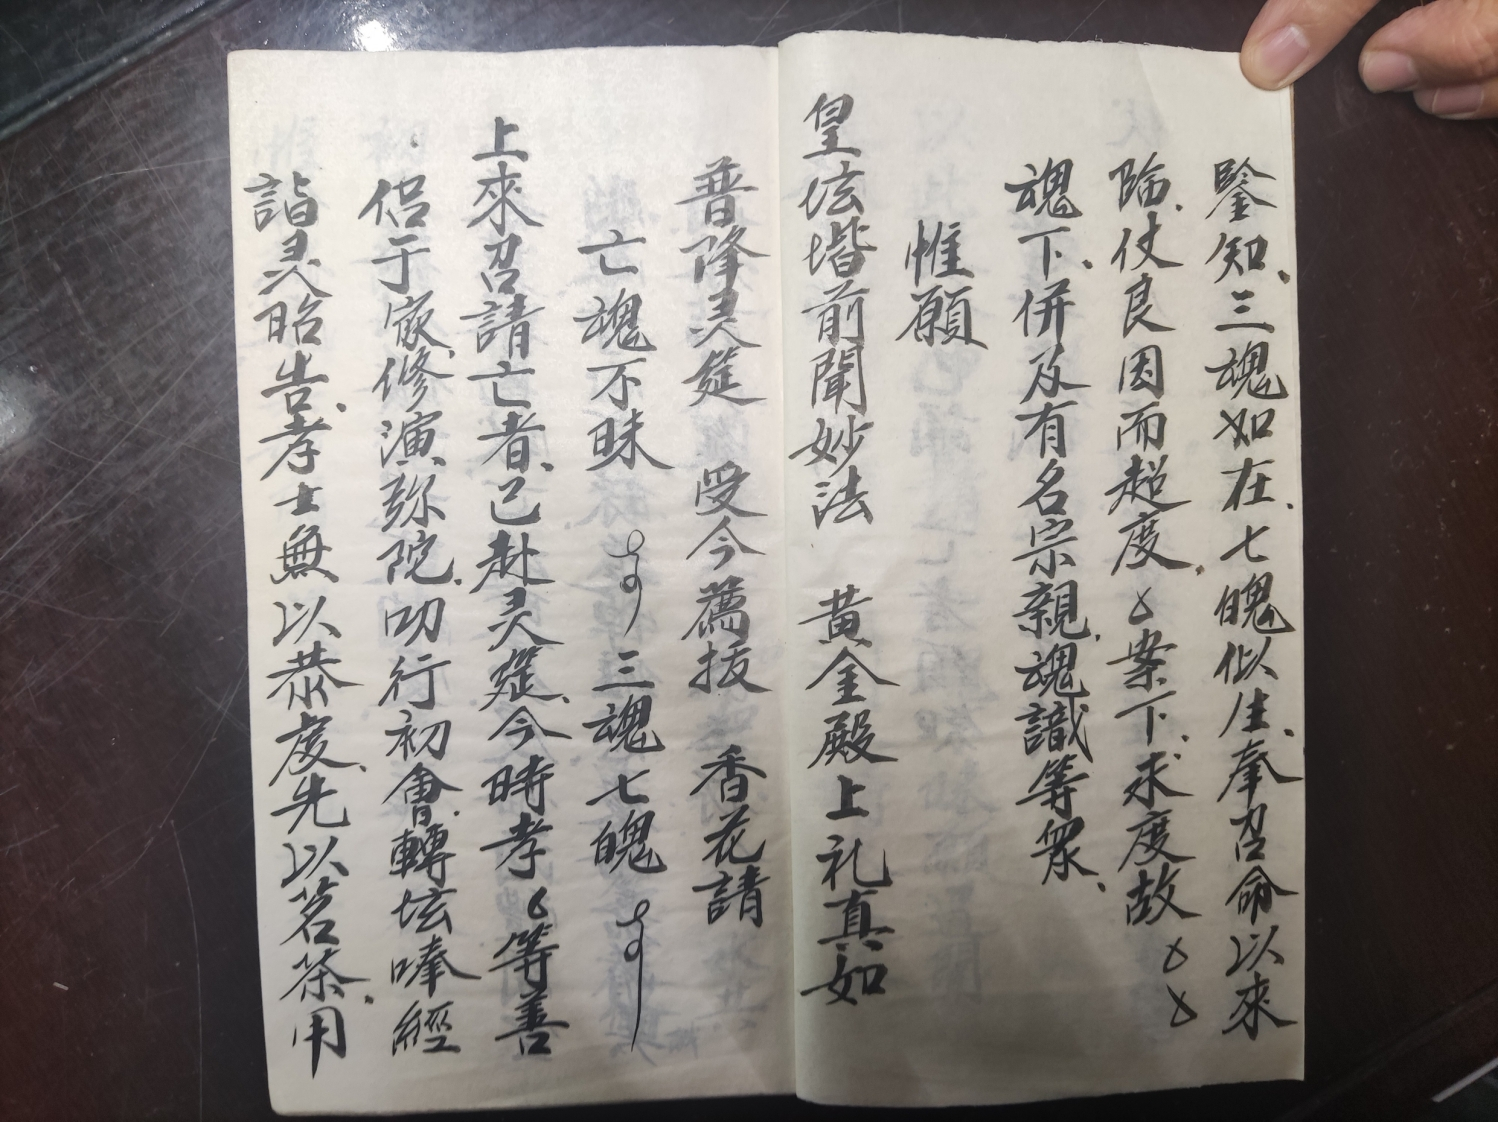 鑒知、三魂如在、七魄似生、奉召命以來
臨、仗良因而超度、案下、求度故
魂下、併及有名宗親、魂識等眾、
惟願
皇坛堦前聞妙法 黃金殿上礼真如
普降灵筵 受今薦拔 香花請
亡魂不昧 三魂七魄
上來召請亡者、已赴灵筵、今時孝等善
侣于家、修演弥陀、叩行初會、轉坛唪經
詣灵昭告、孝士無以恭虔、先以茗茶、用